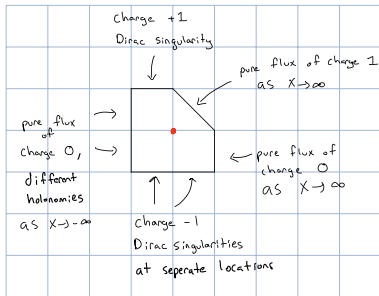 Charge +1
Dirac singularity
pure flux of charge 1
as X→∞
pure flux
of
charge 0,
different
holonomies
as X→-∞
pure flux of
charge 0
as X→∞
Charge -1
Dirac singularities
at seperate locations